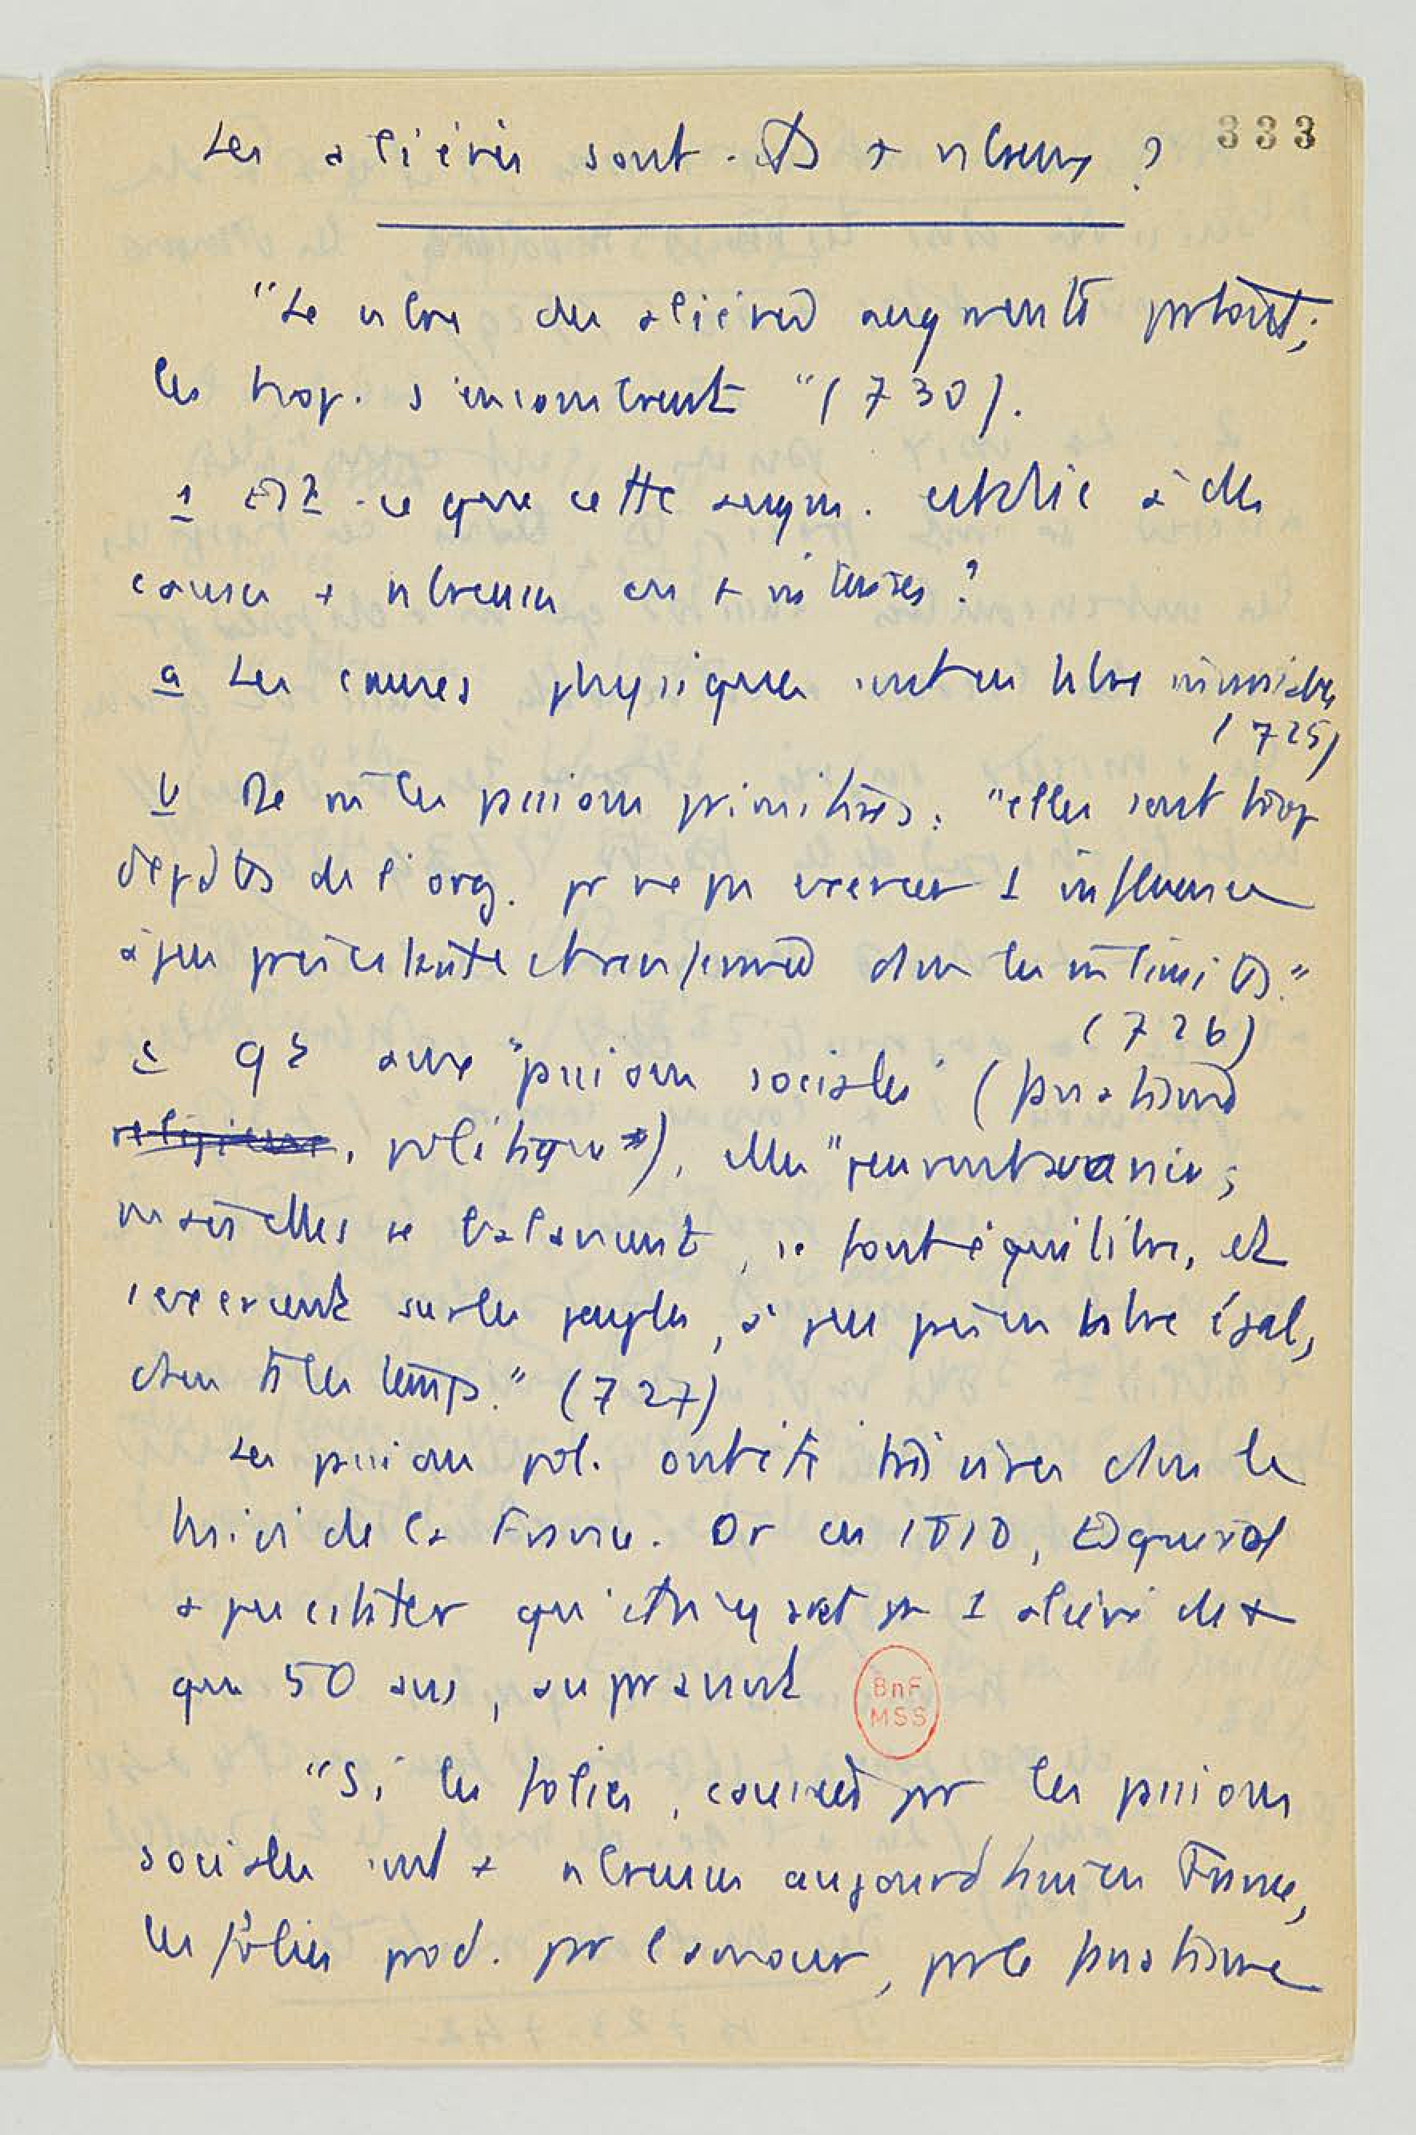 333
Les aliénés sont-ils + nbreux ?
"Le nbre des aliénés augmente partout ;
les hop. s'encombrent" (730).
1 Est-ce que cette augm. est due à des
causes + nbreuses ou + intenses ?
a Les causes physiques sont en nbre
(725)
b De m les passions primitives : "elles sont trop
de l'org. pr ne pas exercer 1 influence
à peu près dans les
(726)
c Qt aux "passions sociales" (fanatisme
religieux, politique), elles "peuvent varier ;
mais elles se balancent, se font équilibre, et
exercent sur les peuples, à peu près en nbre égal,
dans ts les temps." (727)
Les passions pol. ont été très vives dans le
midi de la France. Or en 1810, Esquirol
a pu constater qu'il n'y avait pr 1 aliéné de +
que 50 ans, auparavant
BnF
MSS
"Si les folies, causées par les passions
sociales sont + nbreuses aujourd'hui en France,
les folies prod. par l'amour, par le fanatisme